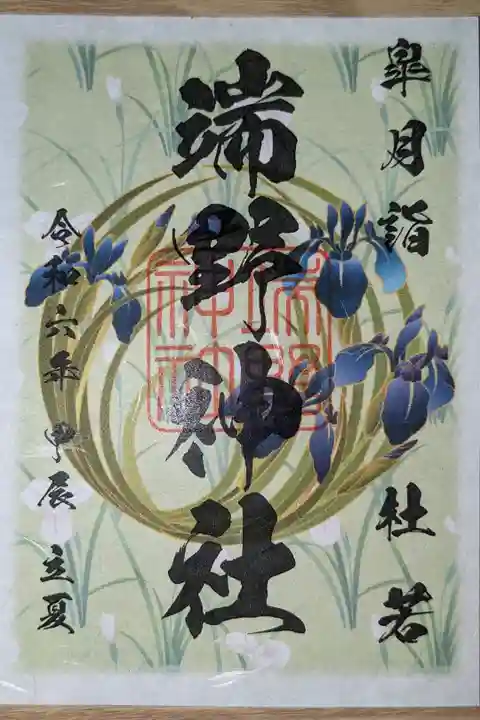 皐月詣 杜若
端野神社
令和六年 甲辰 立夏